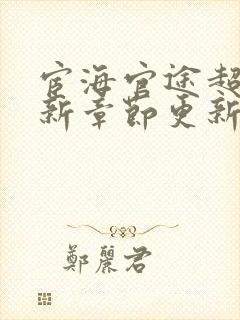 宦海官途超
新章節更新
鄭麗君